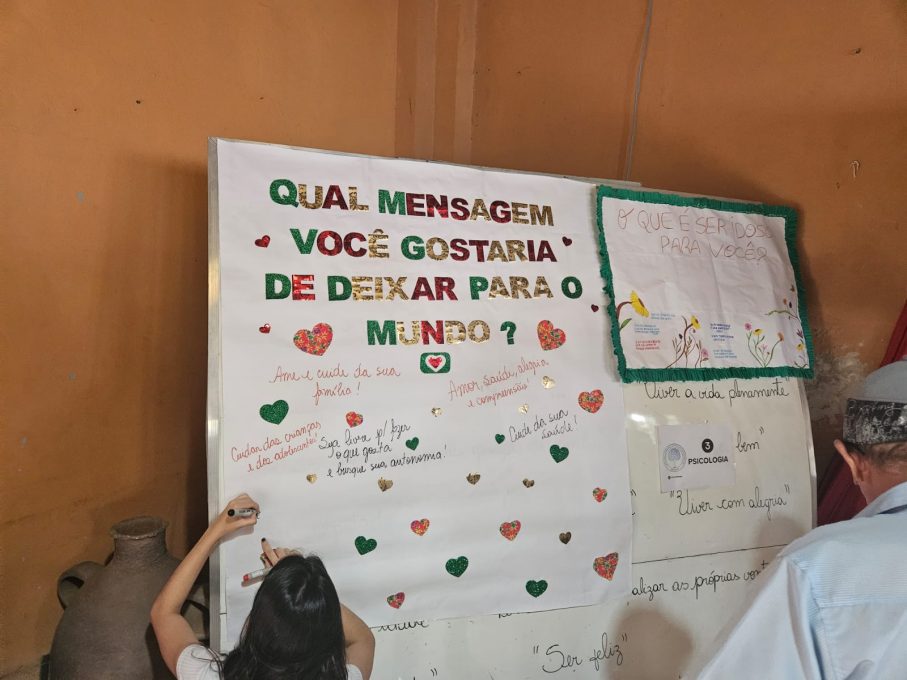 QUAL MENSAGEM
VOCÊ GOSTARIA
DE DEIXAR PARA O
MUNDO ?
Ame e cuide da sua
família!
Amor, saúde, alegria
e compreensão!
Cuidar das crianças
e dos adolescentes!
Seja livre p/ fazer
o que gosta
e busque sua autonomia!
Cuide da sua
saúde!
O QUE É SER IDOSO
PARA VOCÊ?
Viver a vida plenamente"
bem"
3
PSICOLOGIA
"Viver com alegria"
alizar as próprias vont
"Ser feliz"